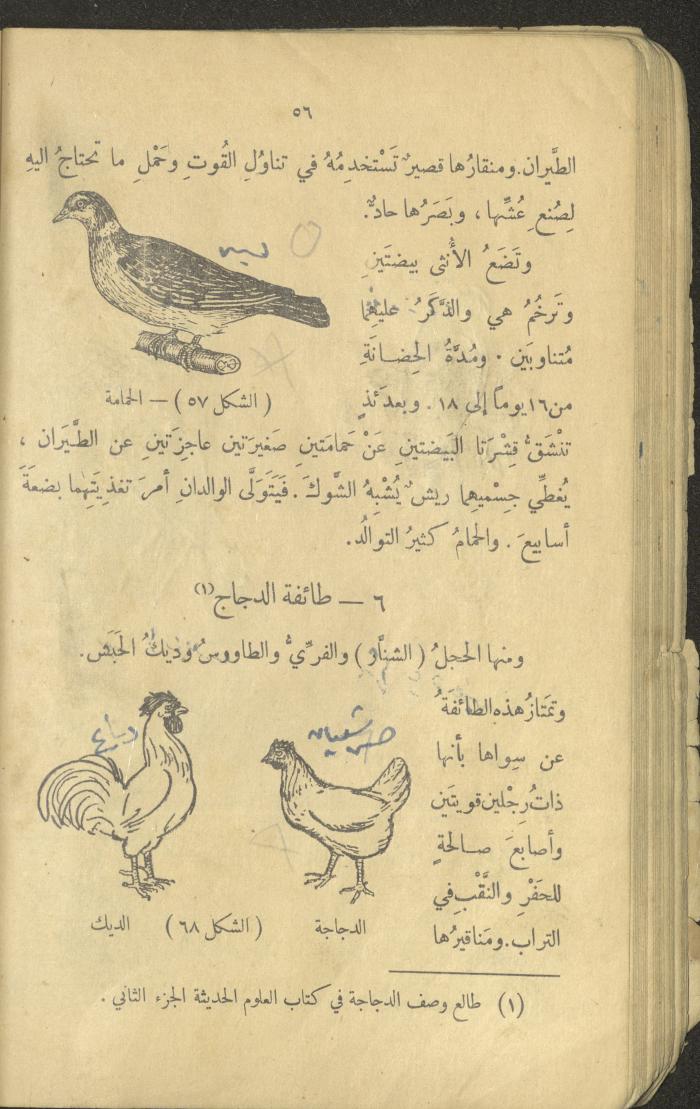 ٥٦
الطَّيران. ومنقارُها قصيرٌ تَسْتخدِمُهُ في تناوُلِ القُوتِ وحَمْلِ ما تحتاجُ اليهِ
لِصُنعِ عُشِّها ، وبَصَرُها حادٌّ.
وتَضَعُ الأُنثى بيضتَينِ
وتَرخُمُ هي والذَّكَرُ عليهِما
مُتناوبَين . ومُدَّةُ الحِضانَةِ
من١٦يوماً إلى ١٨ . وبعدَئذٍ
( الشكل ٥٧ ) — الحمامة
تنْشَقُّ قِشْرَتا البَيضتَينِ عَنْ حَمامَتَينِ صَغيرَتَينِ عاجِزَتَينِ عن الطَّيَران ،
يُغطِّي جِسْمَيهِما ريشٌ يُشْبِهُ الشَّوكَ . فَيَتَوَلَّى الوالدانِ أمرَ تغذيَتِهِما بضعَةَ
أسابيعَ . والحمَامُ كثيرُ التوالُد.
٦ — طائفة الدجاج (١)
ومنها الحجلُ ( الشنَّار ) والفرِّيُّ والطاووسُ وديكُ الحَبَش .
وتمتَازُ هذه الطائفَةُ
عن سِواها بأنها
ذاتُ رِجْلين قويتَين
وأصابعَ صالحةٍ
للحَفْرِ والنَّقْبِ في
التراب. ومَناقيرُها
الدجاجة ( الشكل ٦٨ ) الديك
(١) طالع وصف الدجاجة في كتاب العلوم الحديثة الجزء الثاني .